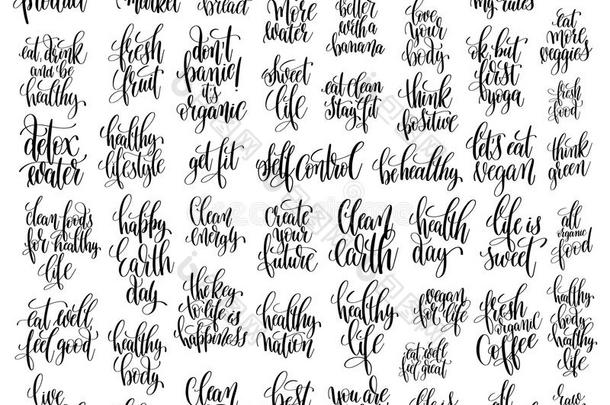 product
market
breast
more
water
better
with a
banana
love
your
body
my rules
eat
more
veggies
eat, drink
and be
healthy
fresh
fruit
don't
panic!
it's
organic
sweet
life
eat clean
stay fit
think
positive
ok, but
first
yoga
fresh
food
detox
water
healthy
lifestyle
get fit
self control
be healthy
let's eat
vegan
think
green
clean foods
for healthy
life
happy
Earth
day
clean
energy
create
your
future
clean
earth
health
day
life is
sweet
all
organic
food
eat well,
feel good
healthy
body
the key
to life is
happiness
healthy
nation
healthy
life
vegan
for life
eat well
feel great
fresh
organic
coffee
healthy
body
healthy
life
live
clean
best
you are
life is
all
raw